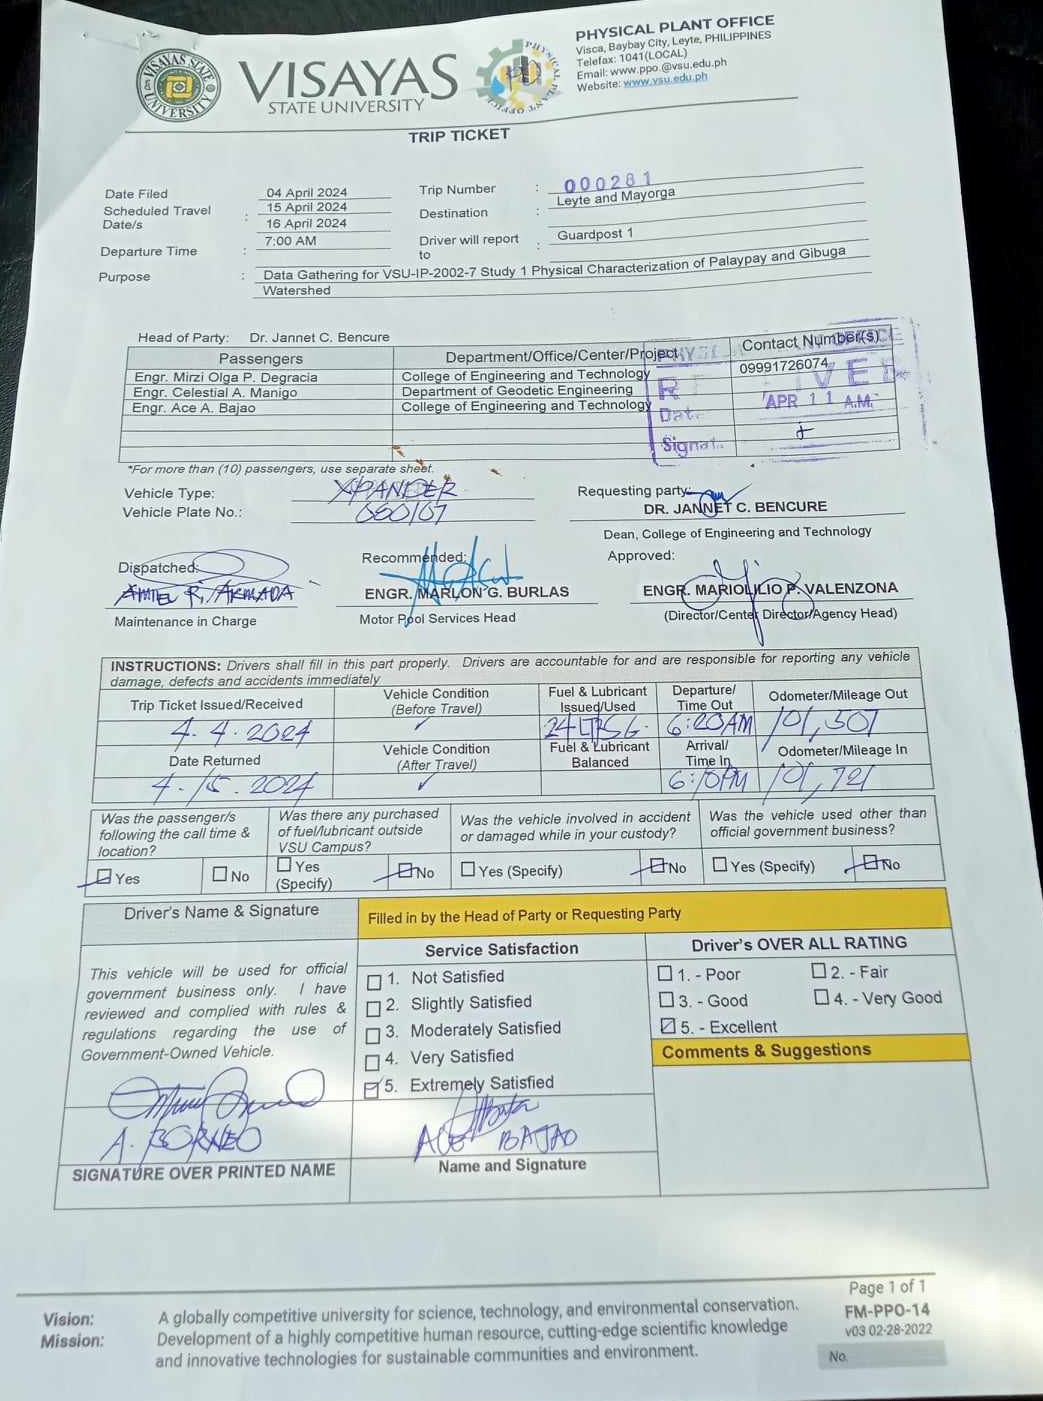 VISAYAS STATE UNIVERSITY
VISAYAS
STATE UNIVERSITY
PHYSICAL PLANT OFFICE
PHYSICAL PLANT OFFICE
Visca, Baybay City, Leyte, PHILIPPINES
Telefax: 1041(LOCAL)
Email: www.ppo.@vsu.edu.ph
Website: www.vsu.edu.ph
TRIP TICKET
Date Filed 04 April 2024 Trip Number : 000281
Scheduled Travel Date/s : 15 April 2024 16 April 2024 Destination : Leyte and Mayorga
Departure Time : 7:00 AM Driver will report to : Guardpost 1
Purpose : Data Gathering for VSU-IP-2002-7 Study 1 Physical Characterization of Palaypay and Gibuga
Watershed
Head of Party: Dr. Jannet C. Bencure
Passengers Department/Office/Center/Project Contact Number(s)
Engr. Mirzi Olga P. Degracia College of Engineering and Technology 09991726074
Engr. Celestial A. Manigo Department of Geodetic Engineering
Engr. Ace A. Bajao College of Engineering and Technology
APR 11 A.M.
*For more than (10) passengers, use separate sheet.
Vehicle Type: XPANDER
Vehicle Plate No.: 050107
Requesting party:
DR. JANNET C. BENCURE
Dean, College of Engineering and Technology
Dispatched: Recommended: Approved:
AMIEL R. ARMADA ENGR. MARLON G. BURLAS ENGR. MARIOLILIO P. VALENZONA
Maintenance in Charge Motor Pool Services Head (Director/Center Director/Agency Head)
INSTRUCTIONS: Drivers shall fill in this part properly. Drivers are accountable for and are responsible for reporting any vehicle
damage, defects and accidents immediately
Trip Ticket Issued/Received Vehicle Condition (Before Travel) Fuel & Lubricant Issued/Used Departure/ Time Out Odometer/Mileage Out
4.4.2024 ✓ 6:20AM 101,507
Date Returned Vehicle Condition (After Travel) Fuel & Lubricant Balanced Arrival/ Time In Odometer/Mileage In
4.15.2024 ✓ 6:10PM 101,721
Was the passenger/s following the call time & location? Was there any purchased of fuel/lubricant outside VSU Campus? Was the vehicle involved in accident or damaged while in your custody? Was the vehicle used other than official government business?
Yes No Yes (Specify) No Yes (Specify) No Yes (Specify) No
Driver's Name & Signature
Filled in by the Head of Party or Requesting Party
This vehicle will be used for official
government business only. I have
reviewed and complied with rules &
regulations regarding the use of
Government-Owned Vehicle.
A. BORNEO
SIGNATURE OVER PRINTED NAME
Service Satisfaction
1. Not Satisfied
2. Slightly Satisfied
3. Moderately Satisfied
4. Very Satisfied
5. Extremely Satisfied
ACE BAJAO
Name and Signature
Driver's OVER ALL RATING
1. - Poor 2. - Fair
3. - Good 4. - Very Good
5. - Excellent
Comments & Suggestions
Vision: A globally competitive university for science, technology, and environmental conservation.
Mission: Development of a highly competitive human resource, cutting-edge scientific knowledge
and innovative technologies for sustainable communities and environment.
Page 1 of 1
FM-PPO-14
v03 02-28-2022
No.